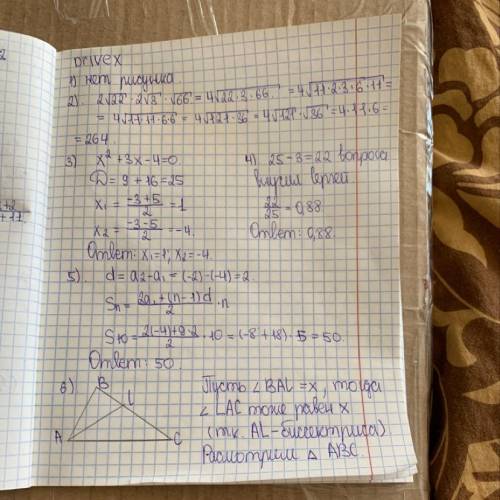 Drivex
1) нет рисунка
2) 2√22 · 2√3 · √66 = 4√22·3·66 = 4√11·2·3·6·11 =
= 4√11·11·6·6 = 4√121·36 = 4√121·√36 = 4·11·6 =
= 264.
3) x² + 3x - 4 = 0
D = 9 + 16 = 25
x₁ = (-3+5)/2 = 1
x₂ = (-3-5)/2 = -4.
Ответ: x₁ = 1; x₂ = -4.
4) 25 - 3 = 22 вопроса
выучил
22/25 = 0,88
Ответ: 0,88.
5) d = a₂ - a₁ = (-2) - (-4) = 2.
Sₙ = (2a₁ + (n-1)d)/2 · n
S₁₀ = (2(-4) + 9·2)/2 · 10 = (-8 + 18) · 5 = 50.
Ответ: 50.
6)
B
L
A
C
Пусть ∠BAL = x, тогда
∠LAC тоже равен x
(т.к. AL - биссектриса)
Рассмотрим △ ABC